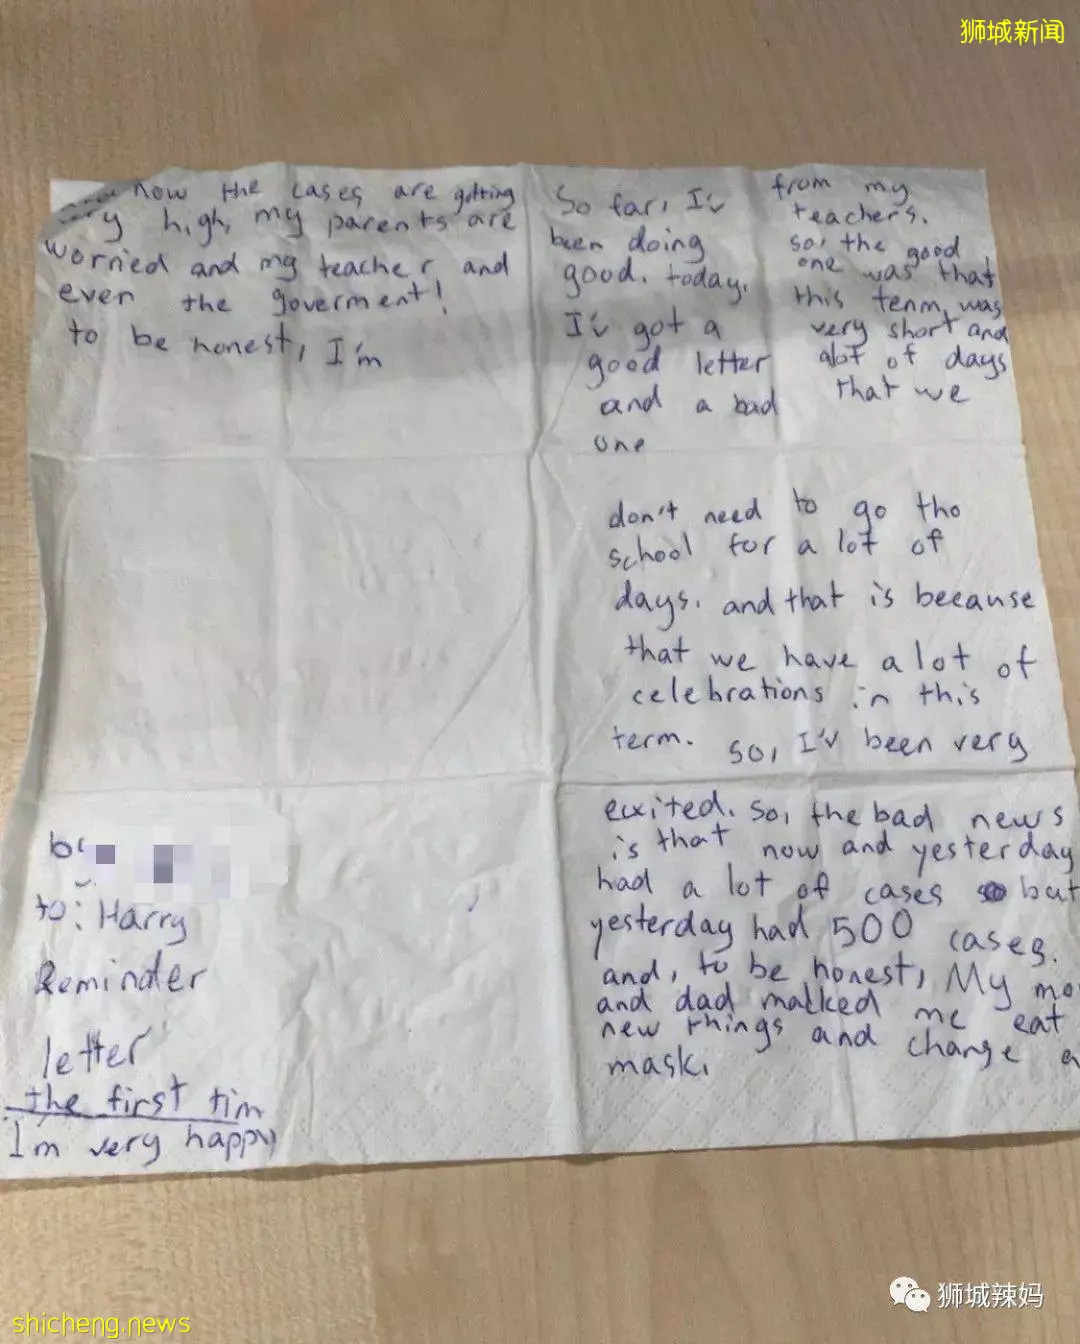 狮城新闻
now the cases are getting
high, my parents are
worried and my teacher, and
even the goverment!
to be honest, I'm
So far, I'v
been doing
good. today,
I'v got a
good letter
and a bad
one
from my
teachers.
so, the good
one was that
this term, was
very short and
alot of days
that we
don't need to go tho
school for a lot of
days. and that is because
that we have a lot of
celebrations in this
term. so, I'v been very
exited. so, the bad news
is that now and yesterday
had a lot of cases but
yesterday had 500 cases.
and, to be honest, My
and dad macked me eat
new things and change
mask.
to: Harry
Reminder
letter
the first tim
I'm very happy
狮城辣妈
shicheng.news